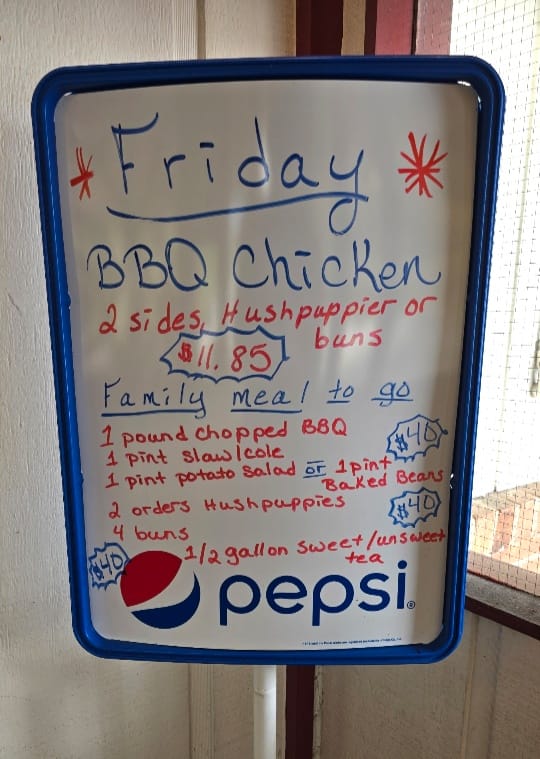 Friday
BBQ Chicken
2 sides, Hushpuppier or
buns
$11.85
Family meal to go
1 pound chopped BBQ
$40
1 pint slaw/cole
1 pint potato salad or 1 pint
Baked Beans
2 orders Hushpuppies
$40
4 buns
1/2 gallon sweet/unsweet
tea
$40
pepsi®